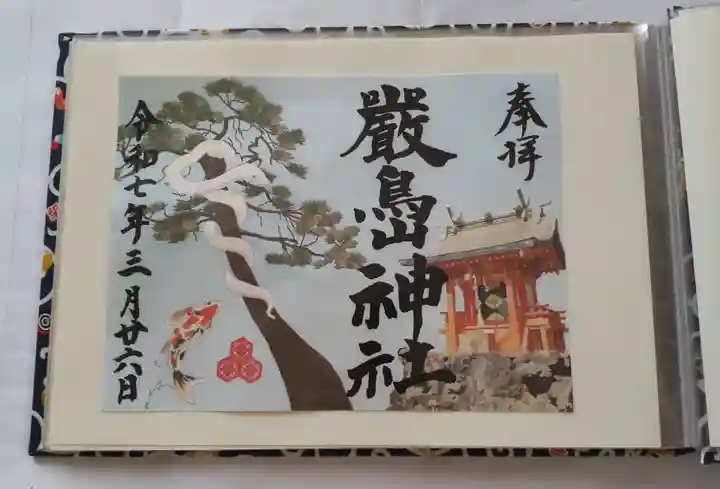 奉拝
嚴島神社
令和七年三月廿六日